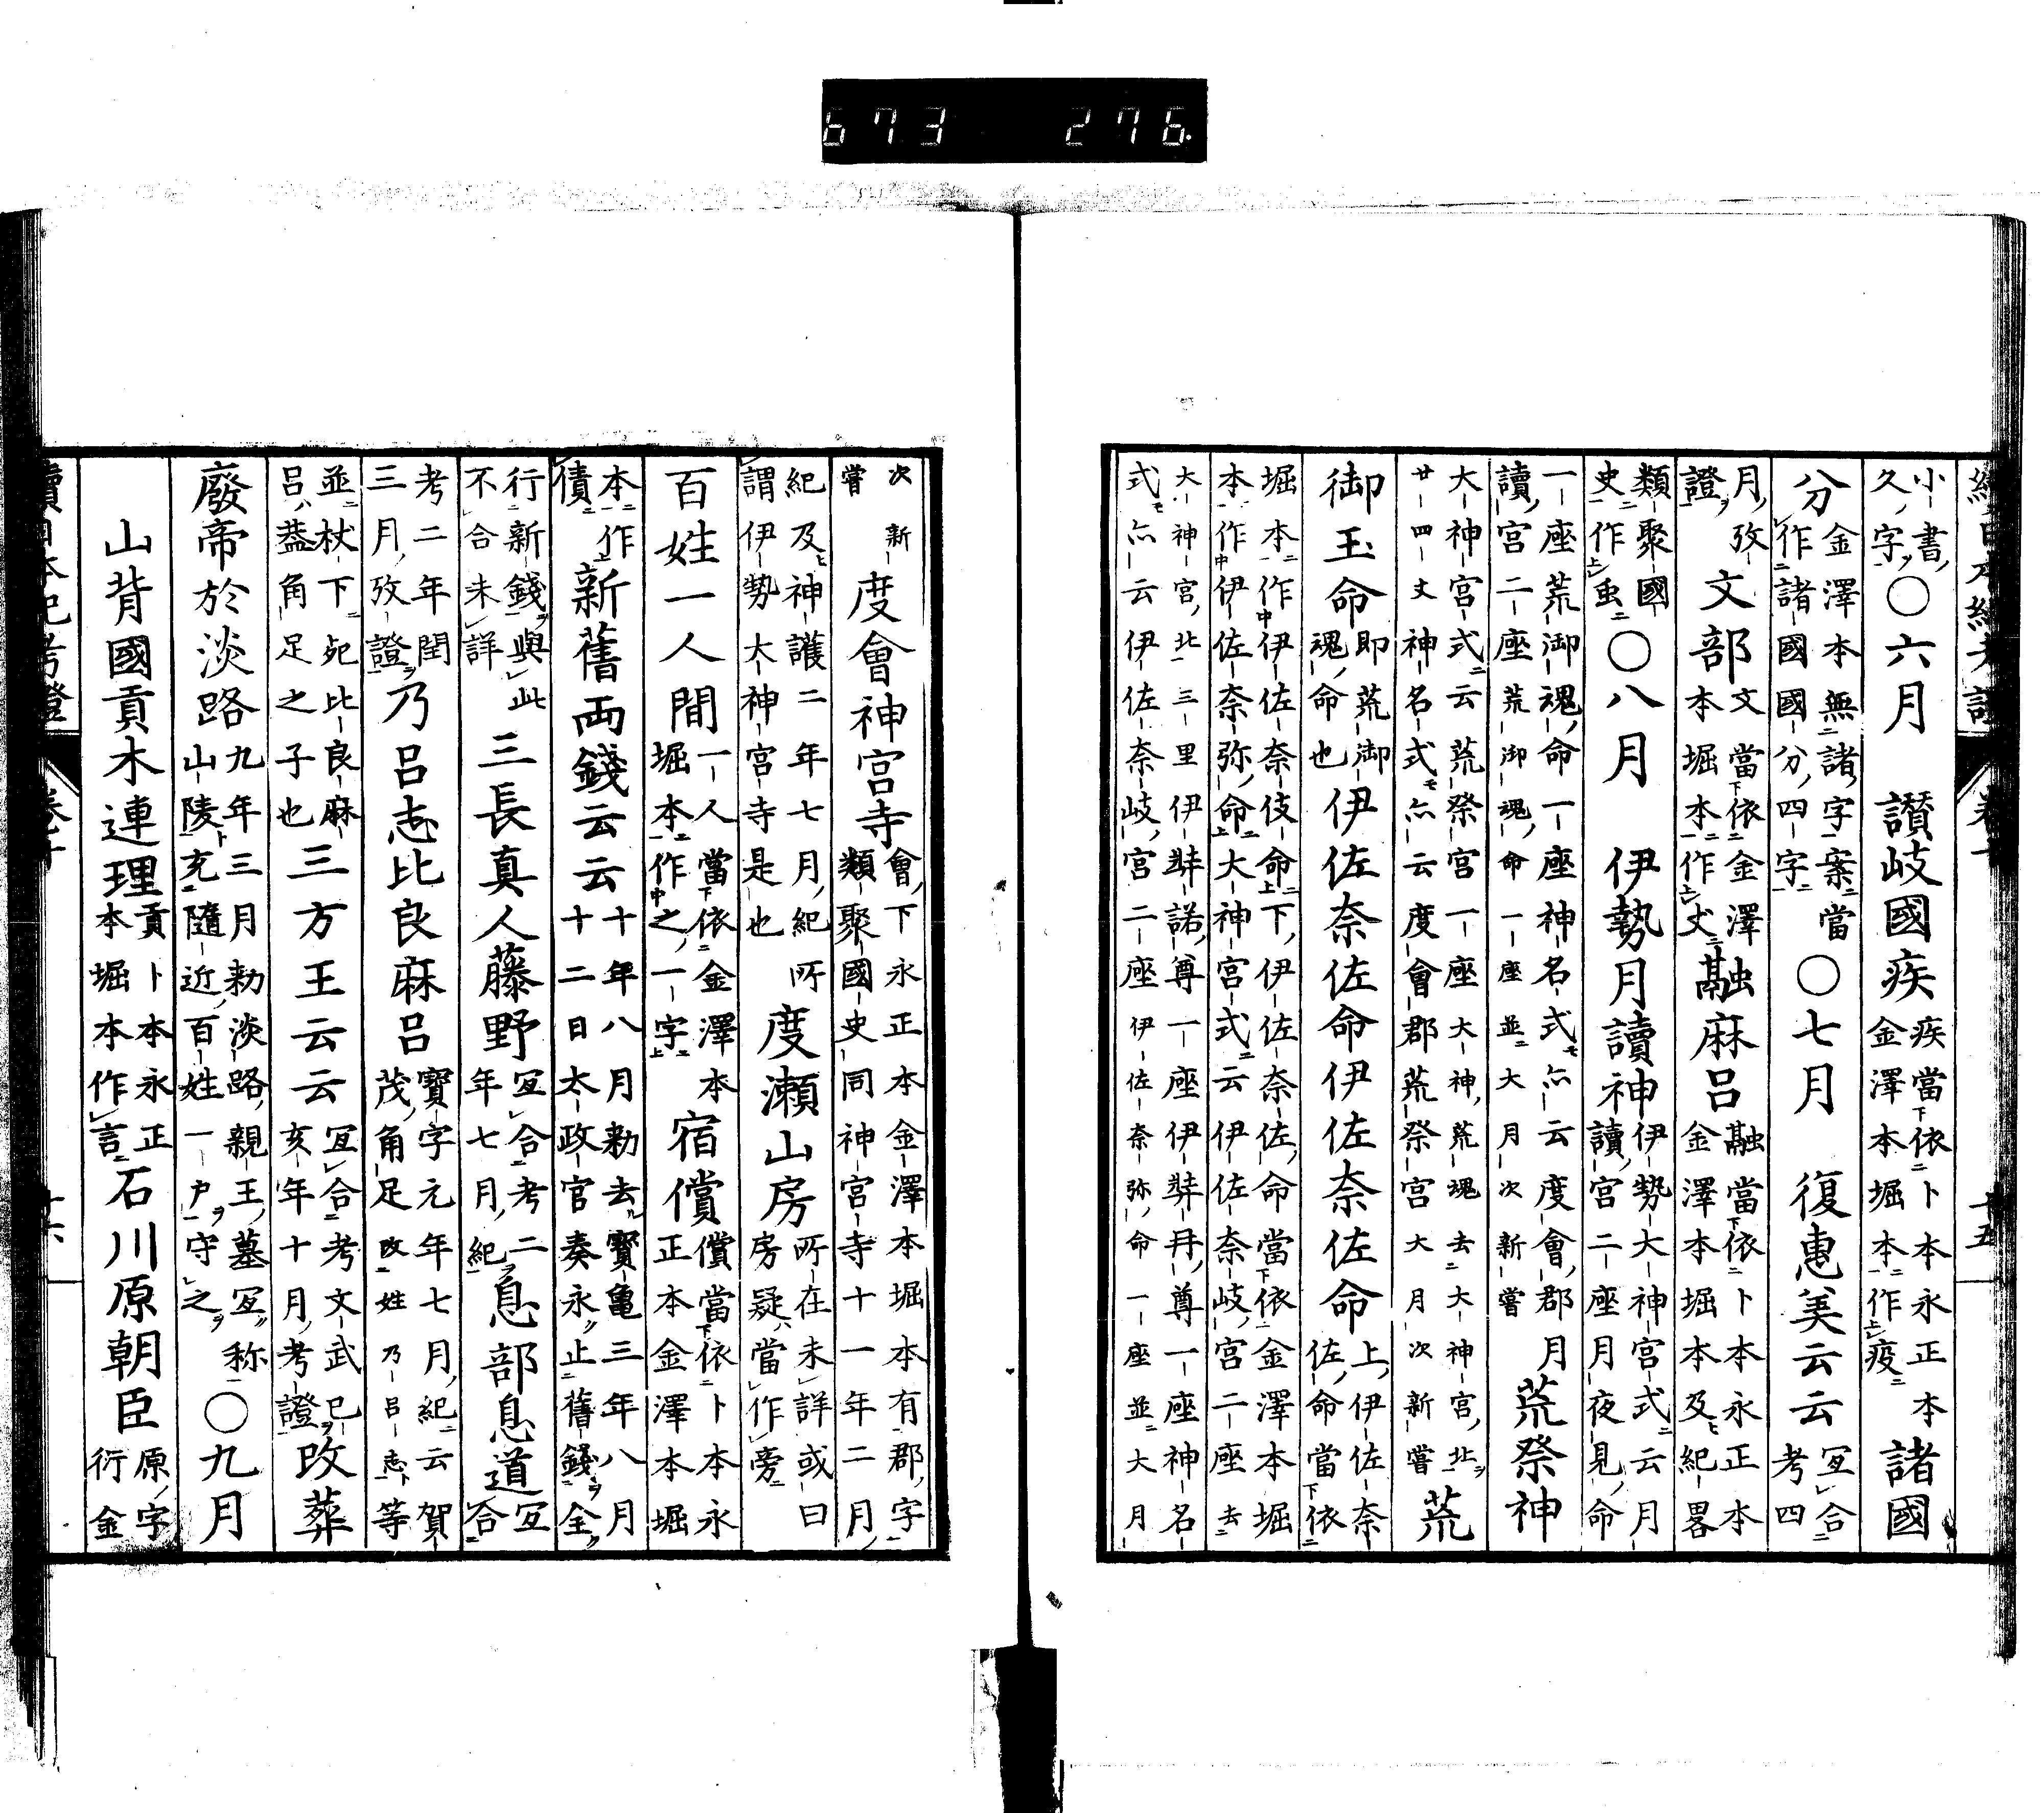 673 276
小書、久字、〇六月 讃岐國疾疾當依卜本永正本金澤本堀本作疫諸國
分金澤本無諸字案當作諸國國分四字〇七月 復惠美云云宜合考四
月、攷證文部文當依金澤本堀本作丈䰙麻呂䰙當依卜本永正本金澤本堀本及紀畧
類聚國史作虫〇八月 伊勢月讀神伊勢大神宮式云月讀宮二座月夜見命
一座荒御魂命一座神名式亦云度會郡月讀宮二座荒御魂命一座並大月次新嘗荒祭神
大神宮式云荒祭宮一座大神荒魂去大神宮北廿四丈神名式亦云度會郡荒祭宮大月次新嘗荒
御玉命即荒御魂命也伊佐奈佐命伊佐奈佐命上伊佐奈佐命當依
堀本作伊佐奈伎命下伊佐奈佐命當依金澤本堀本作伊佐奈弥命大神宮式云伊佐奈岐宮二座去
大神宮北三里伊弉諾尊一座伊弉冉尊一座神名式亦云伊佐奈岐宮二座伊佐奈弥命一座並大月
次新嘗度會神宮寺會下永正本金澤本堀本有郡字類聚國史同神宮寺十一年二月
紀及神護二年七月紀所謂伊勢大神宮寺是也度瀬山房所在未詳或曰房疑當作旁
百姓一人間一人當依金澤本堀本作之一字宿償償當依卜本永正本金澤本堀
本作債新舊両錢云云十年八月勅去寶亀三年八月十二日太政官奏永止舊錢全
行新錢與此不合未詳三長真人藤野宜合考二年七月紀息部息道宜合
考二年閏三月攷證乃呂志比良麻呂寶字元年七月紀云賀茂角足改姓乃呂志等
並杖下死比良麻呂蓋角足之子也三方王云云宜合考文武己亥年十月考證改葬
廢帝於淡路九年三月勅淡路親王墓宜称山陵充隨近百姓一戸守之〇九月
山背國貢木連理貢卜本永正本堀本作言石川原朝臣原字衍金